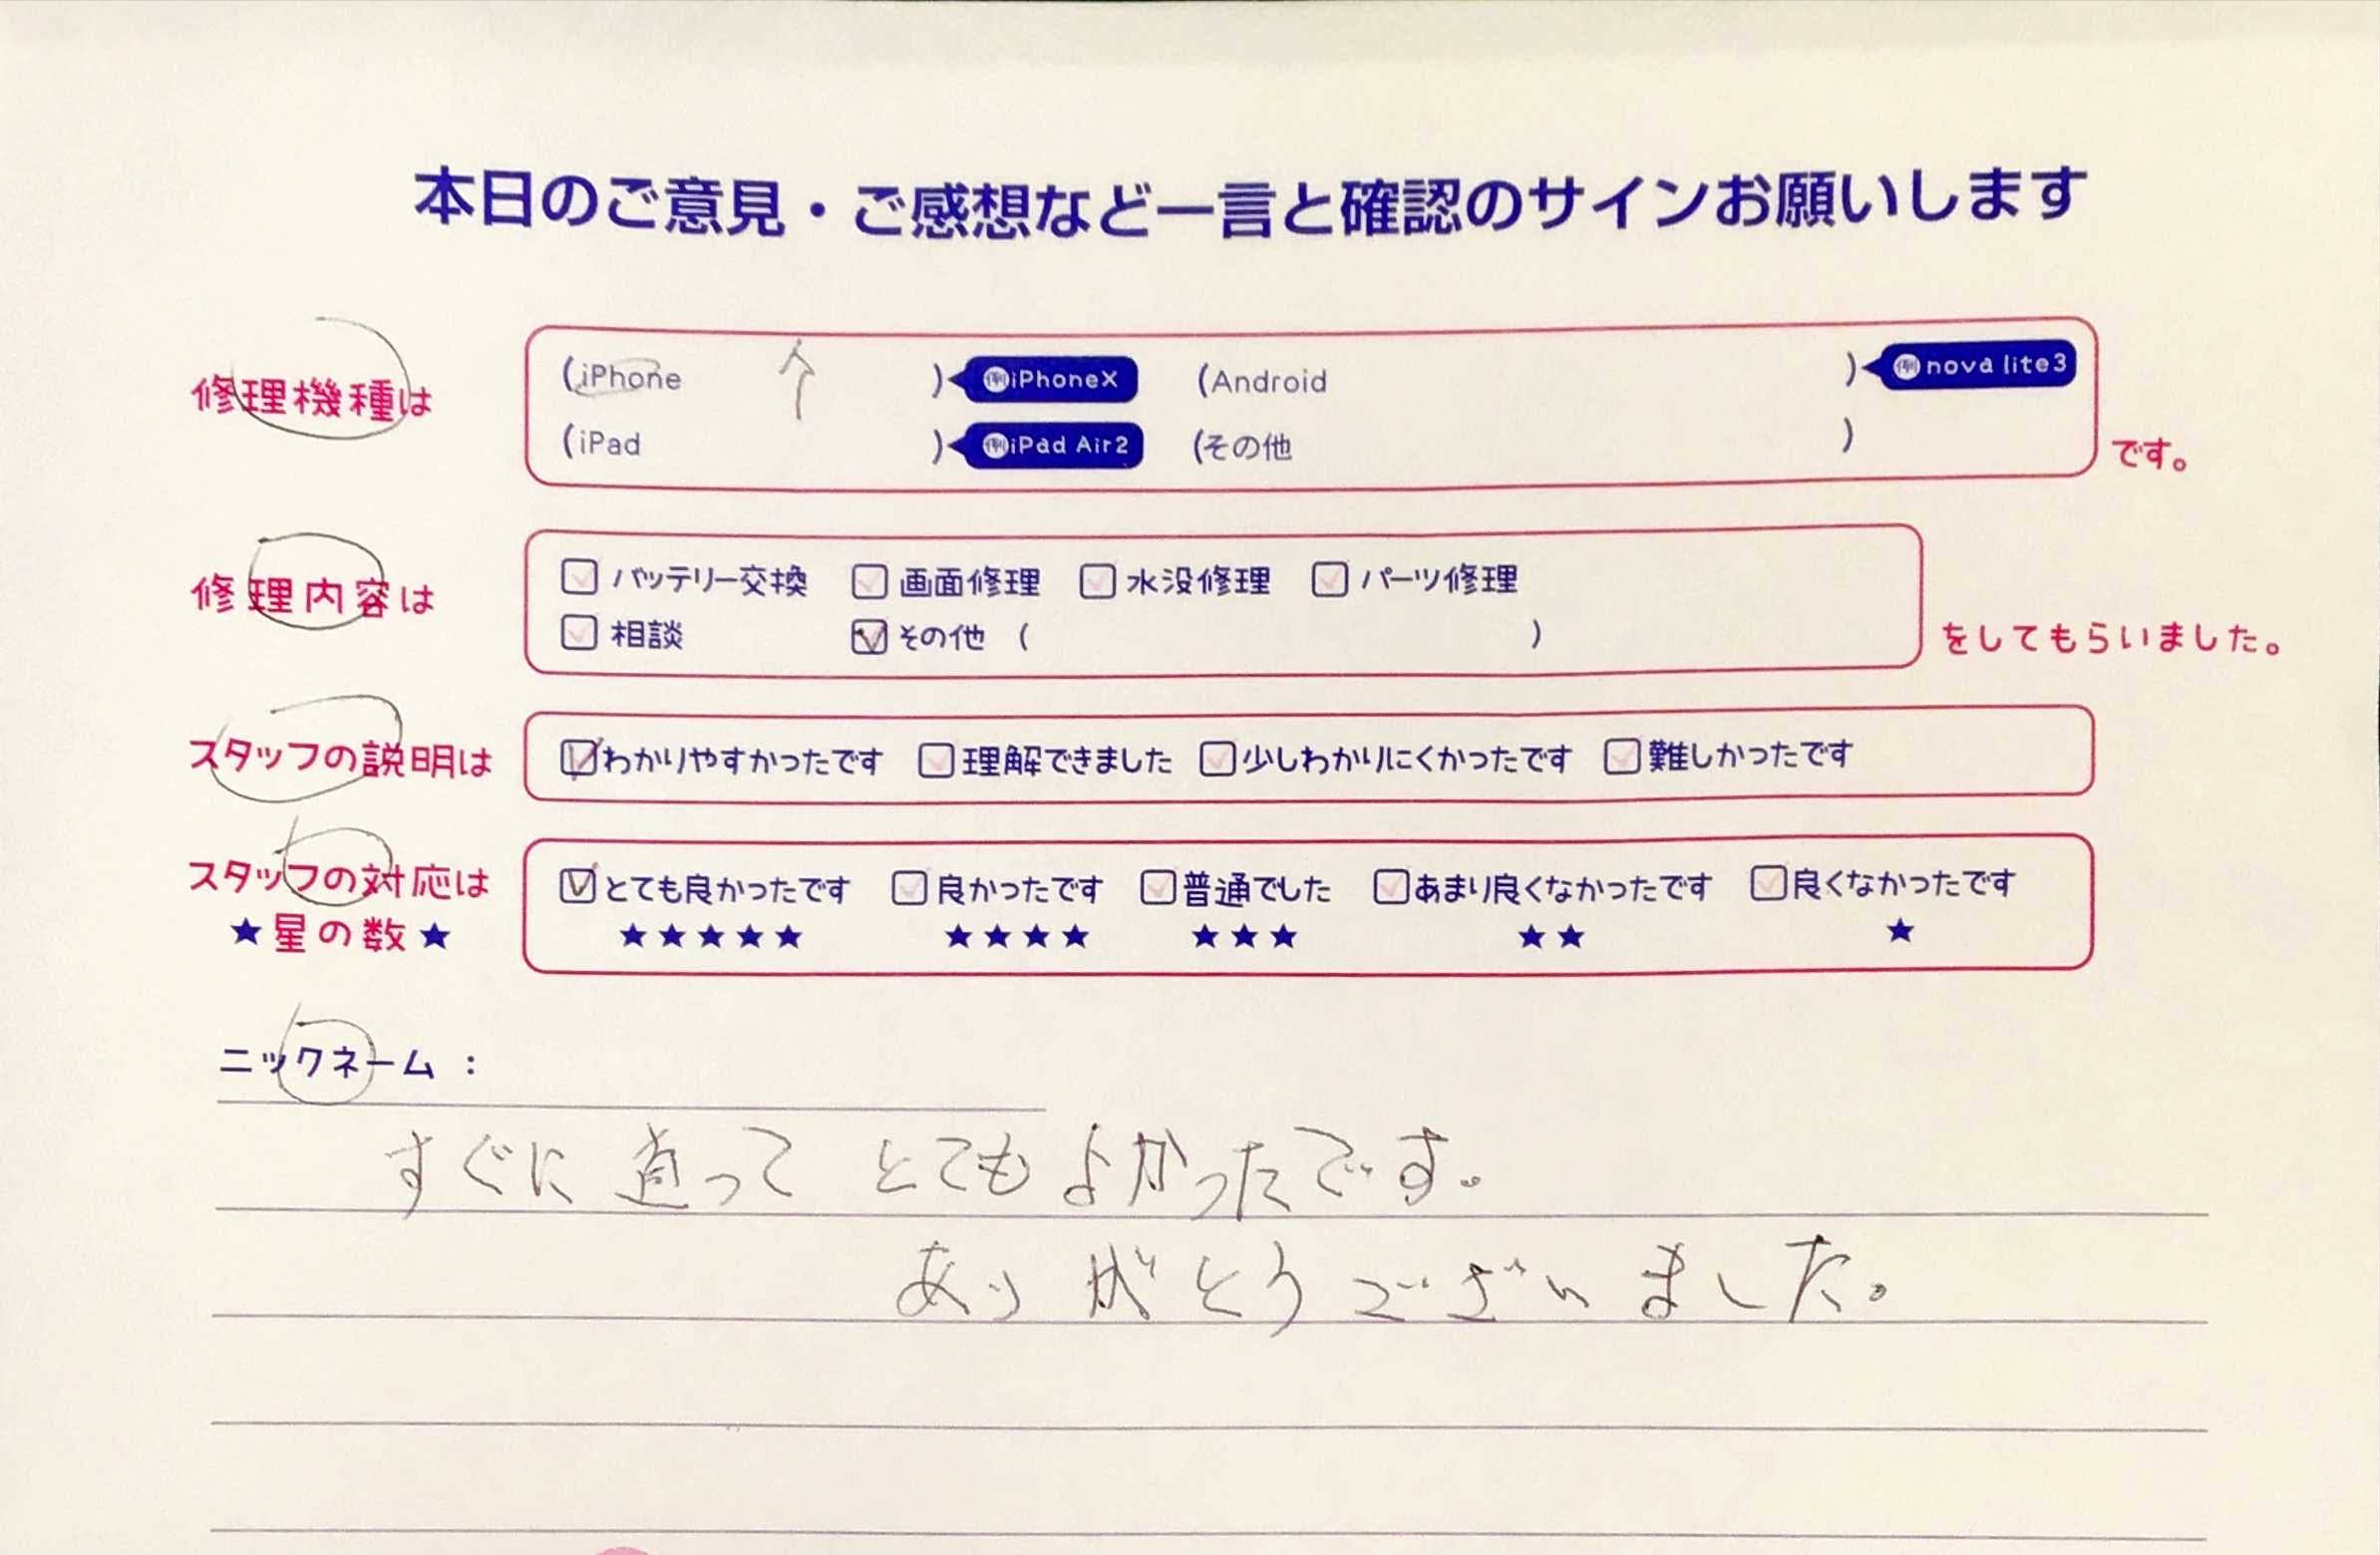 本日のご意見・ご感想など一言と確認のサインお願いします
修理機種は (iPhone ) 例iPhoneX (Android ) 例nova lite3
(iPad ) 例iPad Air2 (その他 ) です。
修理内容は バッテリー交換 画面修理 水没修理 パーツ修理
相談 その他 ( ) をしてもらいました。
スタッフの説明は わかりやすかったです 理解できました 少しわかりにくかったです 難しかったです
スタッフの対応は とても良かったです 良かったです 普通でした あまり良くなかったです 良くなかったです
★星の数★ ★★★★★ ★★★★ ★★★ ★★ ★
ニックネーム :
すぐに直ってとてもよかったです。
ありがとうございました。